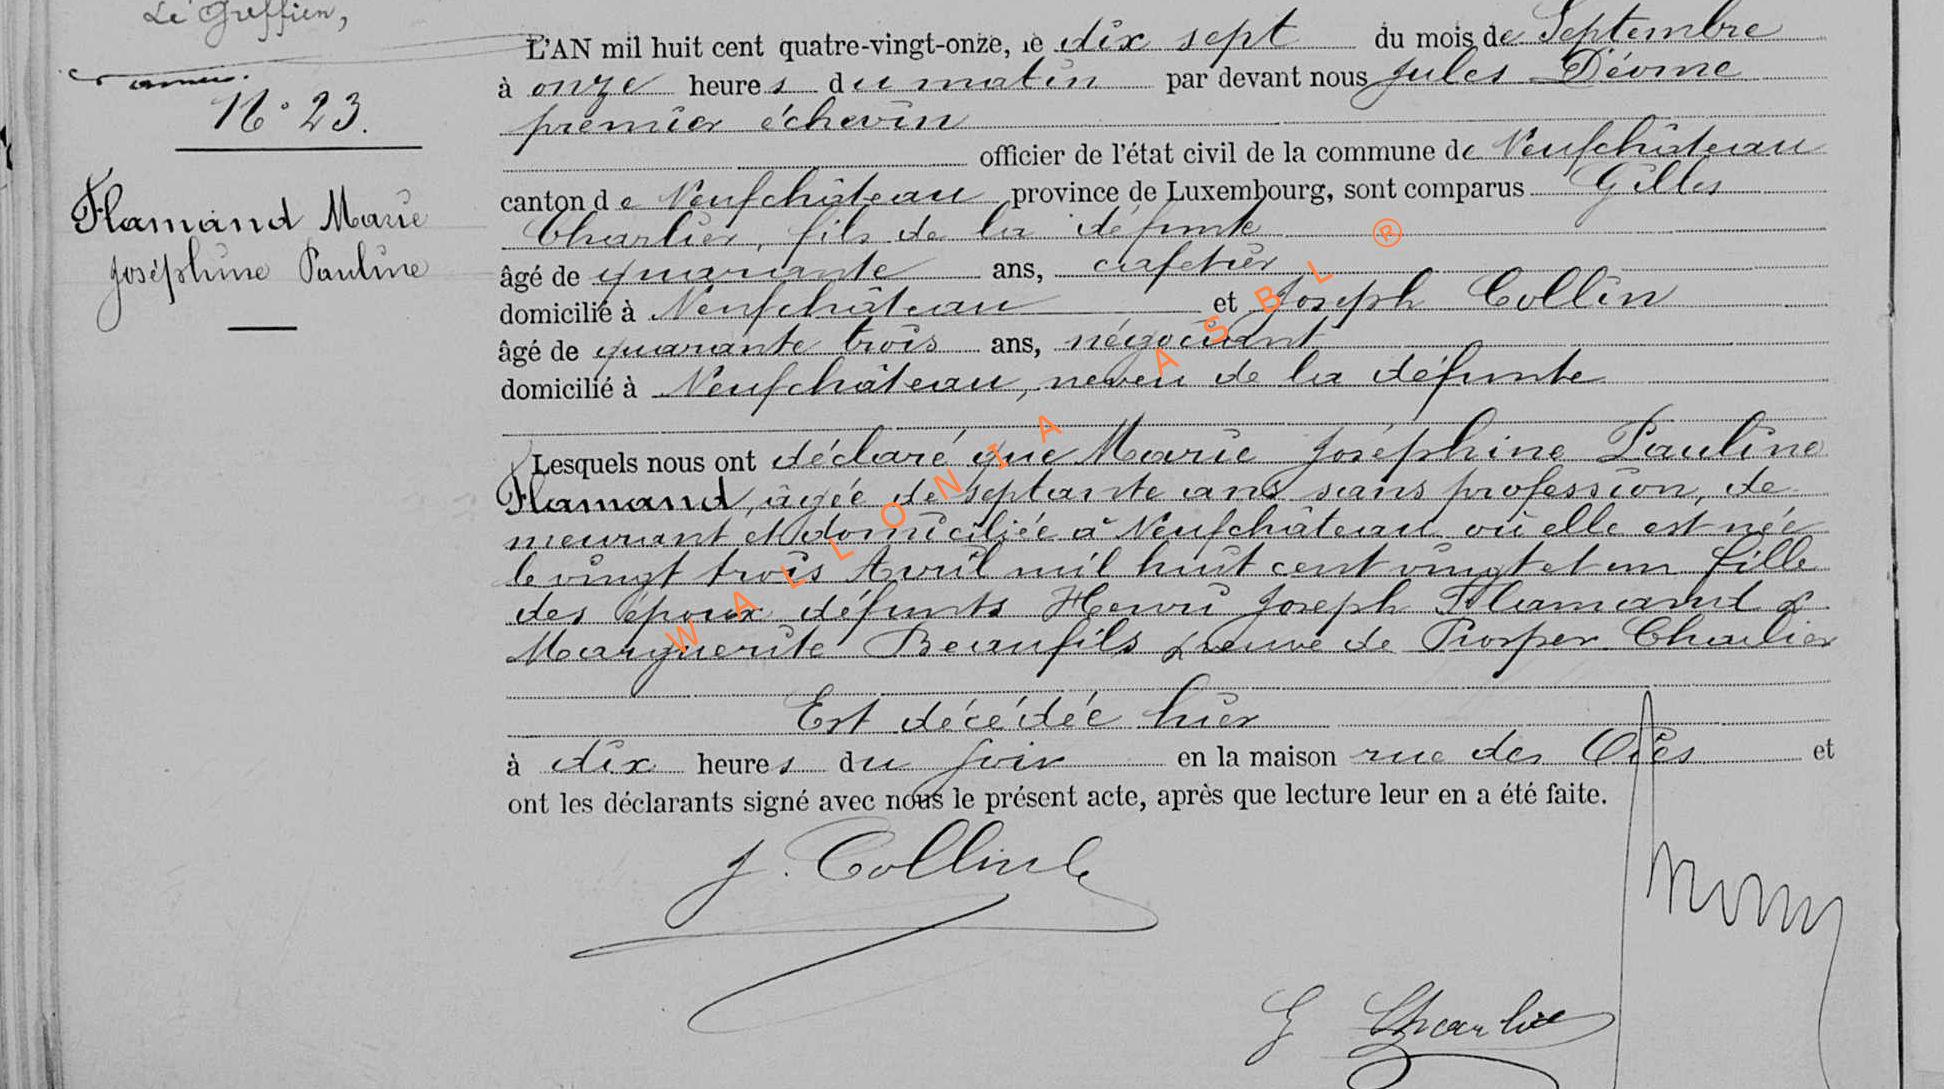 Le Greffier,
N° 23.
Flamand Marie
Joséphine Pauline
L'AN mil huit cent quatre-vingt-onze, le dix sept du mois de Septembre
à onze heures du matin par devant nous Jules
premier échevin
officier de l'état civil de la commune de Neufchâteau
canton de Neufchâteau province de Luxembourg, sont comparus Gilles
Charlier, fils de la défunte
âgé de quarante ans, cafetier
domicilié à Neufchâteau et Joseph Collin
âgé de quarante trois ans, négociant
domicilié à Neufchâteau, neveu de la défunte
Lesquels nous ont déclaré que Marie Joséphine Pauline
Flamand, âgée de septante ans sans profession, de-
meurant et domiciliée à Neufchâteau où elle est née
le vingt trois Avril mil huit cent vingt et un fille
des époux défunts Henri Joseph Flamand &
Marguerite Beaufils & veuve de Prosper Charlier
Est décédée hier
à dix heures du soir en la maison rue des Oies et
ont les déclarants signé avec nous le présent acte, après que lecture leur en a été faite.
J. Collin
G Charlier
WALLONIA ASBL ®